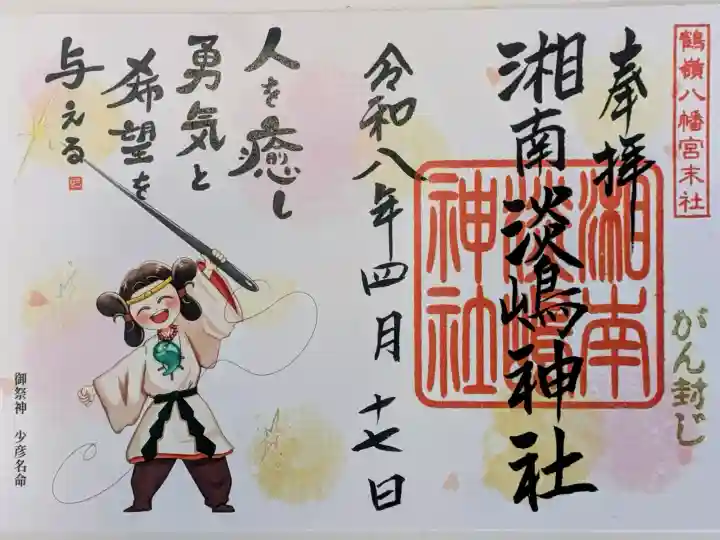 鶴嶺八幡宮末社
奉拝
がん封じ
湘南淡嶋神社
湘南
淡嶋
神社
令和八年四月十七日
人を癒し
勇気と
希望を
与える
御祭神 少彦名命